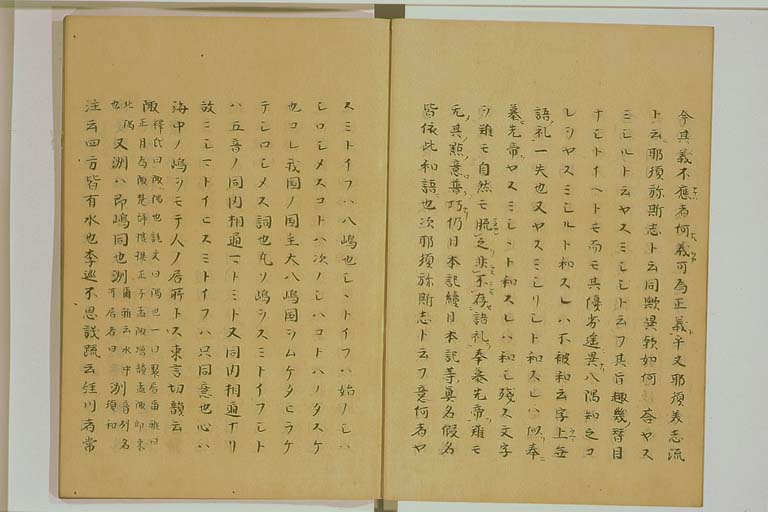 今其義不應者何義可為正義乎又耶須美志流
ト云耶須弥斯志ト云同歟異歟如何 荅ヤス
ミシルト云ヤスミシシト云フ其旨趣幾替目
ナシトイヘトモ而モ其優劣遙異八隅知之コ
レヲヤスミシルト和スレハ不被和云字上無
語礼一失也又ヤスミシリシト和スレハ似奉
慕先帝ヤスミシシト和スレハ和シ殘ス文字
シ難モ自然モ脱之悲不存諸礼奉慕先帝難モ
无其㸃意普巧仍日本記續日本記等真名假名
皆依此和語也次耶須弥斯志ト云フ意何者ヤ
スミトイフハ八嶋也シシトイフハ始ノシハ
シロシメスコトハ次ノシハコトハノタスケ
也コレ我国ノ国主大八嶋国シムケタヒラケ
テシロシメス詞也凡ソ嶋シスミトイフシト
ハ五音ノ同内相通マトミト又同内相通ナリ
故ニシマトイヒスミトイフハ只同意也心ハ
海中ノ嶋シモテ人ノ居所トス東宮切韻云
陬 釋氏曰陬隅也説文曰隅也一曰聚居爾雅曰
正月為陬楚辞
北隅也 又洲ハ即嶋同也洲 爾雅云水中
可居者曰洲
注云四方皆有水也李巡不思議疏云經川者常